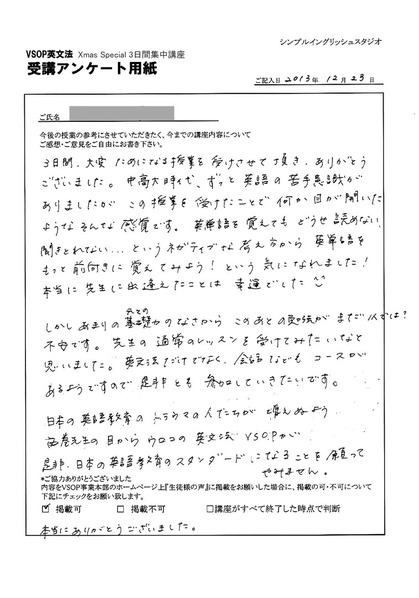 シンプルイングリッシュスタジオ
VSOP英文法 Xmas Special 3日間集中講座
受講アンケート用紙
ご記入日 2013年 12月 23日
ご氏名
今後の授業の参考にさせていただきたく、今までの講座内容について
ご感想・ご意見をご自由にお書き下さい。
3日間、大変 ためになる授業を受けさせて頂き、ありがとう
ございました。中高大時代、ずっと英語の苦手意識が
ありましたが この授業を受けたことで何か目が開いた
ようなそんな感覚です。英単語を覚えても どうせ読めない、
聞きとれない... というネガティブな考え方から 英単語を
もっと前向きに覚えてみよう!という気になれました!
本当に先生に出逢えたことは 幸運でした
しかしあまりの もとの 基礎力のなさから このあとの勉強がまだ1人では?
不安です。先生の通常のレッスンを受けてみたいなと
思いました。英文法だけでなく、会話なども コースが
あるようですので是非とも 参加していきたいです。
日本の英語教育の トラウマの人たちが 増えぬよう
先生の目からウロコの英文法 VSOPが
是非、日本の英語教育のスタンダードになることを願って
やみません。
*ご協力ありがとうございました
内容をVSOP事業本部のホームページ上『生徒様の声』に掲載をお願いした場合に、掲載の可・不可について
下記にチェックをお願い致します。
☑ 掲載可 □ 掲載不可 □講座がすべて終了した時点で判断
本当にありがとうございました。